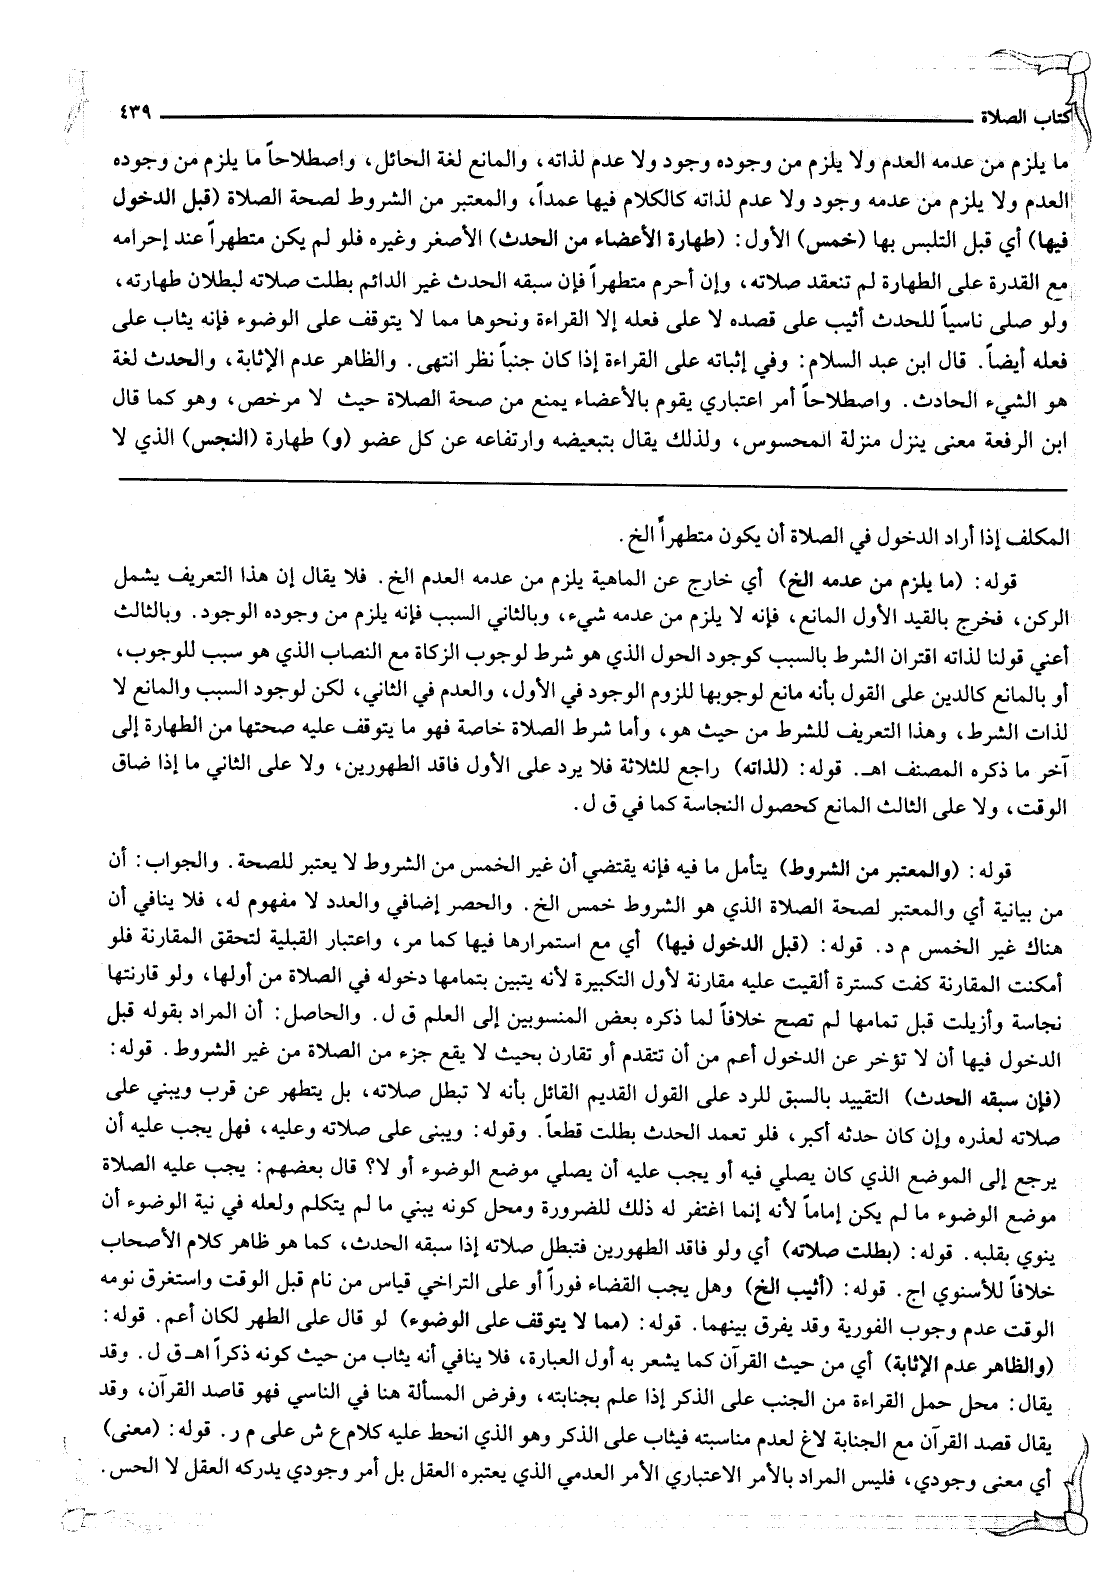 كتاب الصلاة ٤٣٩
ما يلزم من عدمه العدم ولا يلزم من وجوده وجود ولا عدم لذاته، والمانع لغة الحائل، واصطلاحاً ما يلزم من وجوده
العدم ولا يلزم من عدمه وجود ولا عدم لذاته كالكلام فيها عمداً، والمعتبر من الشروط لصحة الصلاة (قبل الدخول
فيها) أي قبل التلبس بها (خمس) الأول: (طهارة الأعضاء من الحدث) الأصغر وغيره فلو لم يكن متطهراً عند إحرامه
مع القدرة على الطهارة لم تنعقد صلاته، وإن أحرم متطهراً فإن سبقه الحدث غير الدائم بطلت صلاته لبطلان طهارته،
ولو صلى ناسياً للحدث أثيب على قصده لا على فعله إلا القراءة ونحوها مما لا يتوقف على الوضوء فإنه يثاب على
فعله أيضاً. قال ابن عبد السلام: وفي إثباته على القراءة إذا كان جنباً نظر انتهى. والظاهر عدم الإثابة، والحدث لغة
هو الشيء الحادث. واصطلاحاً أمر اعتباري يقوم بالأعضاء يمنع من صحة الصلاة حيث لا مرخص، وهو كما قال
ابن الرفعة معنى ينزل منزلة المحسوس، ولذلك يقال بتبعيضه وارتفاعه عن كل عضو (و) طهارة (النجس) الذي لا
المكلف إذا أراد الدخول في الصلاة أن يكون متطهراً الخ.
قوله: (ما يلزم من عدمه الخ) أي خارج عن الماهية يلزم من عدمه العدم الخ. فلا يقال إن هذا التعريف يشمل
الركن، فخرج بالقيد الأول المانع، فإنه لا يلزم من عدمه شيء، وبالثاني السبب فإنه يلزم من وجوده الوجود. وبالثالث
أعني قولنا لذاته اقتران الشرط بالسبب كوجود الحول الذي هو شرط لوجوب الزكاة مع النصاب الذي هو سبب للوجوب،
أو بالمانع كالدين على القول بأنه مانع لوجوبها للزوم الوجود في الأول، والعدم في الثاني، لكن لوجود السبب والمانع لا
لذات الشرط، وهذا التعريف للشرط من حيث هو، وأما شرط الصلاة خاصة فهو ما يتوقف عليه صحتها من الطهارة إلى
آخر ما ذكره المصنف اهـ. قوله: (لذاته) راجع للثلاثة فلا يرد على الأول فاقد الطهورين، ولا على الثاني ما إذا ضاق
الوقت، ولا على الثالث المانع كحصول النجاسة كما في ق ل.
قوله: (والمعتبر من الشروط) يتأمل ما فيه فإنه يقتضي أن غير الخمس من الشروط لا يعتبر للصحة. والجواب: أن
من بيانية أي والمعتبر لصحة الصلاة الذي هو الشروط خمس الخ. والحصر إضافي والعدد لا مفهوم له، فلا ينافي أن
هناك غير الخمس م د. قوله: (قبل الدخول فيها) أي مع استمرارها فيها كما مر، واعتبار القبلية لتحقق المقارنة فلو
أمكنت المقارنة كفت كسترة ألقيت عليه مقارنة لأول التكبيرة لأنه يتبين بتمامها دخوله في الصلاة من أولها، ولو قارنتها
نجاسة وأزيلت قبل تمامها لم تصح خلافاً لما ذكره بعض المنسوبين إلى العلم ق ل. والحاصل: أن المراد بقوله قبل
الدخول فيها أن لا تؤخر عن الدخول أعم من أن تتقدم أو تقارن بحيث لا يقع جزء من الصلاة من غير الشروط. قوله:
(فإن سبقه الحدث) التقييد بالسبق للرد على القول القديم القائل بأنه لا تبطل صلاته، بل يتطهر عن قرب ويبني على
صلاته لعذره وإن كان حدثه أكبر، فلو تعمد الحدث بطلت قطعاً. وقوله: ويبنى على صلاته وعليه، فهل يجب عليه أن
يرجع إلى الموضع الذي كان يصلي فيه أو يجب عليه أن يصلي موضع الوضوء أو لا؟ قال بعضهم: يجب عليه الصلاة
موضع الوضوء ما لم يكن إماماً لأنه إنما اغتفر له ذلك للضرورة ومحل كونه يبني ما لم يتكلم ولعله في نية الوضوء أن
ينوي بقلبه. قوله: (بطلت صلاته) أي ولو فاقد الطهورين فتبطل صلاته إذا سبقه الحدث، كما هو ظاهر كلام الأصحاب
خلافاً للأسنوي اج. قوله: (أثيب الخ) وهل يجب القضاء فوراً أو على التراخي قياس من نام قبل الوقت واستغرق نومه
الوقت عدم وجوب الفورية وقد يفرق بينهما. قوله: (مما لا يتوقف على الوضوء) لو قال على الطهر لكان أعم. قوله:
(والظاهر عدم الإثابة) أي من حيث القرآن كما يشعر به أول العبارة، فلا ينافي أنه يثاب من حيث كونه ذكراً اهـ ق ل. وقد
يقال: محل حمل القراءة من الجنب على الذكر إذا علم بجنابته، وفرض المسألة هنا في الناسي فهو قاصد القرآن، وقد
يقال قصد القرآن مع الجنابة لاغ لعدم مناسبته فيثاب على الذكر وهو الذي انحط عليه كلام ع ش على م ر. قوله: (معنى)
أي معنى وجودي، فليس المراد بالأمر الاعتباري الأمر العدمي الذي يعتبره العقل بل أمر وجودي يدركه العقل لا الحس.